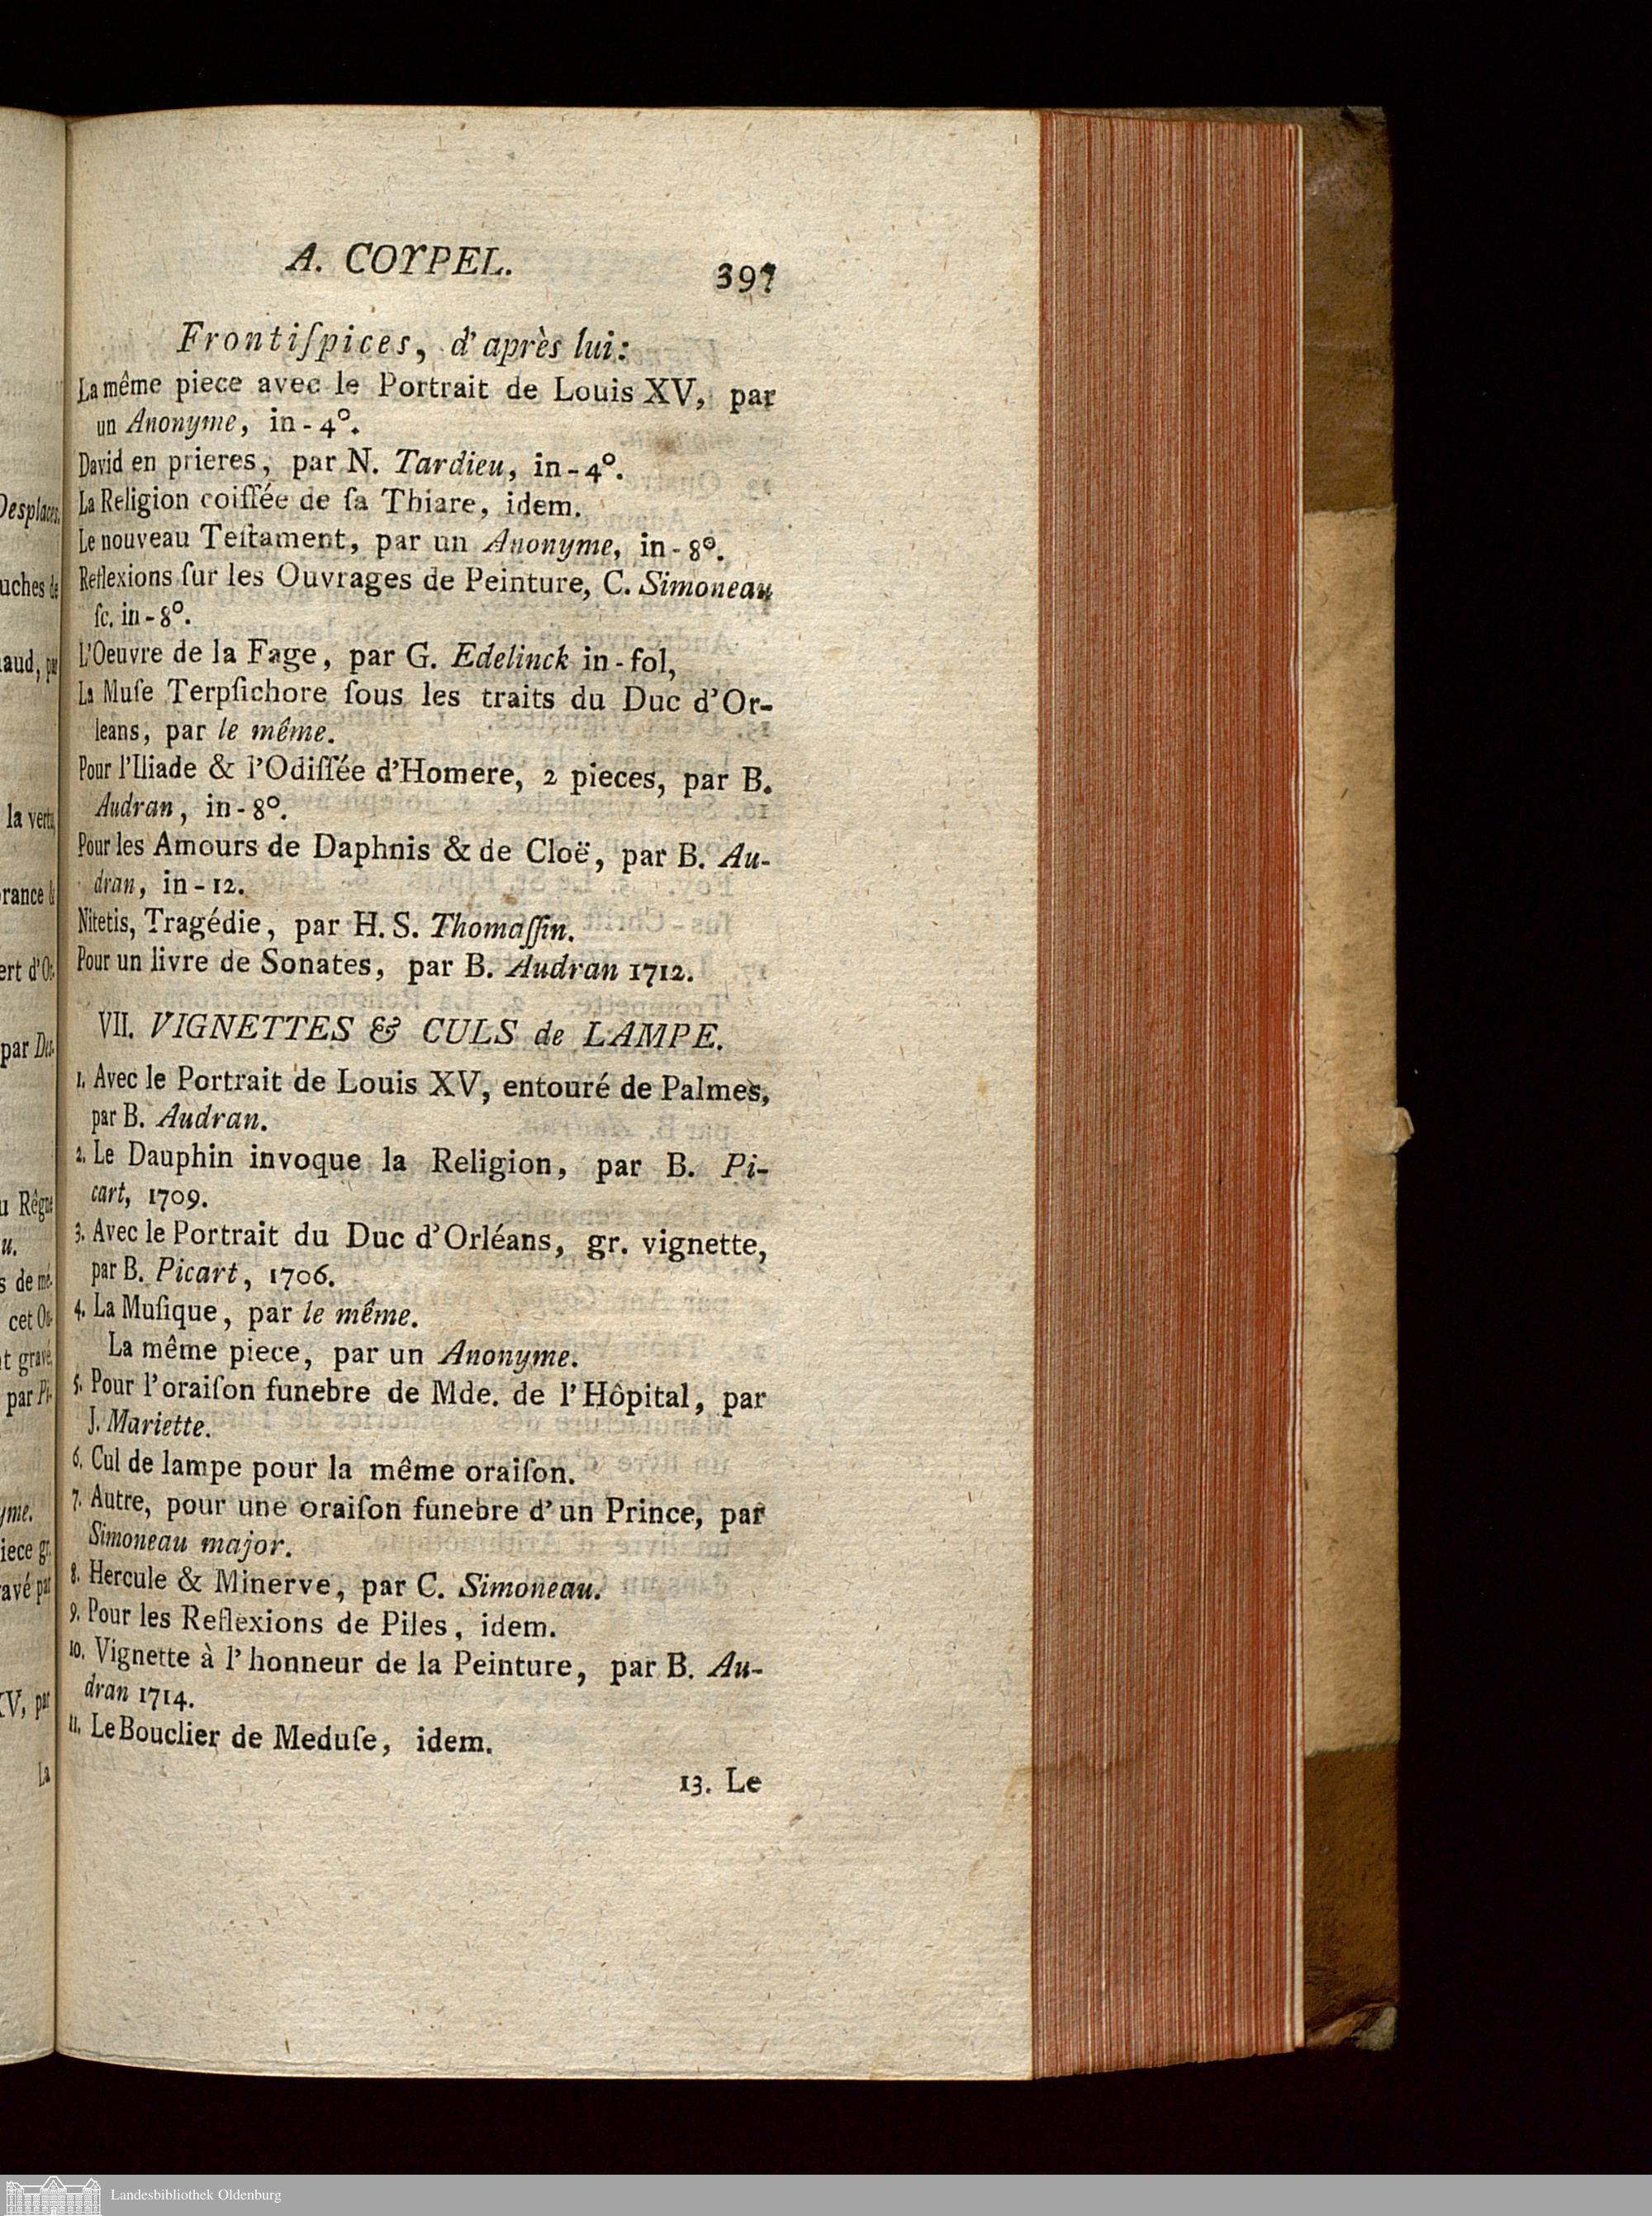 Desplaces,
uches de
aud, par
la vertu,
rance &
ert d'Or-
par Des-
u Rêgne
u.
s de mé-
cet Ou-
t gravé,
par Pi-
yme.
iece gr.
avé par
XV, par
La
A. COYPEL. 397
Frontiſpices, d'après lui:
La même piece avec le Portrait de Louis XV, par
un Anonyme, in-4°.
David en prieres, par N. Tardieu, in-4°.
La Religion coiffée de ſa Thiare, idem.
Le nouveau Teſtament, par un Anonyme, in-8°.
Reflexions ſur les Ouvrages de Peinture, C. Simoneau
ſc. in-8°.
L'Oeuvre de la Fage, par G. Edelinck in-fol,
La Muſe Terpſichore ſous les traits du Duc d'Or-
leans, par le même.
Pour l'Iliade & l'Odiſſée d'Homere, 2 pieces, par B.
Audran, in-8°.
Pour les Amours de Daphnis & de Cloë, par B. Au-
dran, in-12.
Nitetis, Tragédie, par H. S. Thomaſſin.
Pour un livre de Sonates, par B. Audran 1712.
VII. VIGNETTES & CULS de LAMPE.
1. Avec le Portrait de Louis XV, entouré de Palmes,
par B. Audran.
2. Le Dauphin invoque la Religion, par B. Pi-
cart, 1709.
3. Avec le Portrait du Duc d'Orléans, gr. vignette,
par B. Picart, 1706.
4. La Muſique, par le même.
La même piece, par un Anonyme.
5. Pour l'oraiſon funebre de Mde. de l'Hôpital, par
J. Mariette.
6. Cul de lampe pour la même oraiſon.
7. Autre, pour une oraiſon funebre d'un Prince, par
Simoneau major.
8. Hercule & Minerve, par C. Simoneau.
9. Pour les Reflexions de Piles, idem.
10. Vignette à l'honneur de la Peinture, par B. Au-
dran 1714.
11. Le Bouclier de Meduſe, idem.
13. Le
Landesbibliothek Oldenburg